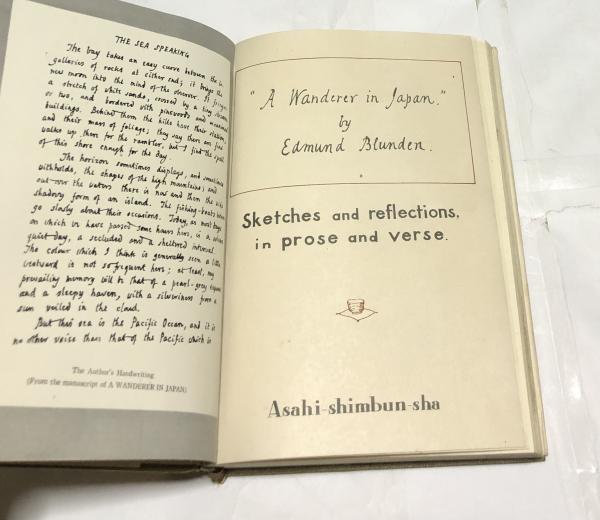 THE SEA SPEAKING
The bay takes an easy curve between the
galleries of rocks at either end; it brings the
new moon into the mind of the observer. It
a stretch of white sands, crossed by a tiny
or two, and bordered with pinewoods and
buildings. Behind them the hills have their
and their mass of foliage; they say there are fine
walks up there for the rambler, but I find the
of this shore enough for the day.
The horizon sometimes displays, and sometimes
withholds, the shapes of the high mountains; and
out over the waters there is now and then the
shadowy form of an island. The fishing-boats
go slowly about their occasions. Today, as most days
on which we have passed some hours here, is a
quiet day, a secluded and a sheltered interval.
The colour which I think is generally seen a little
westward is not so frequent here; at least, my
prevailing memory will be that of a pearl-grey
and a sleepy haven, with a silveriness from a
sun veiled in the cloud.
But this sea is the Pacific Ocean, and it is
no other voice than that of the Pacific which is
The Author's Handwriting
(From the manuscript of A WANDERER IN JAPAN)
"A Wanderer in Japan."
by
Edmund Blunden.
Sketches and reflections,
in prose and verse.
Asahi-shimbun-sha